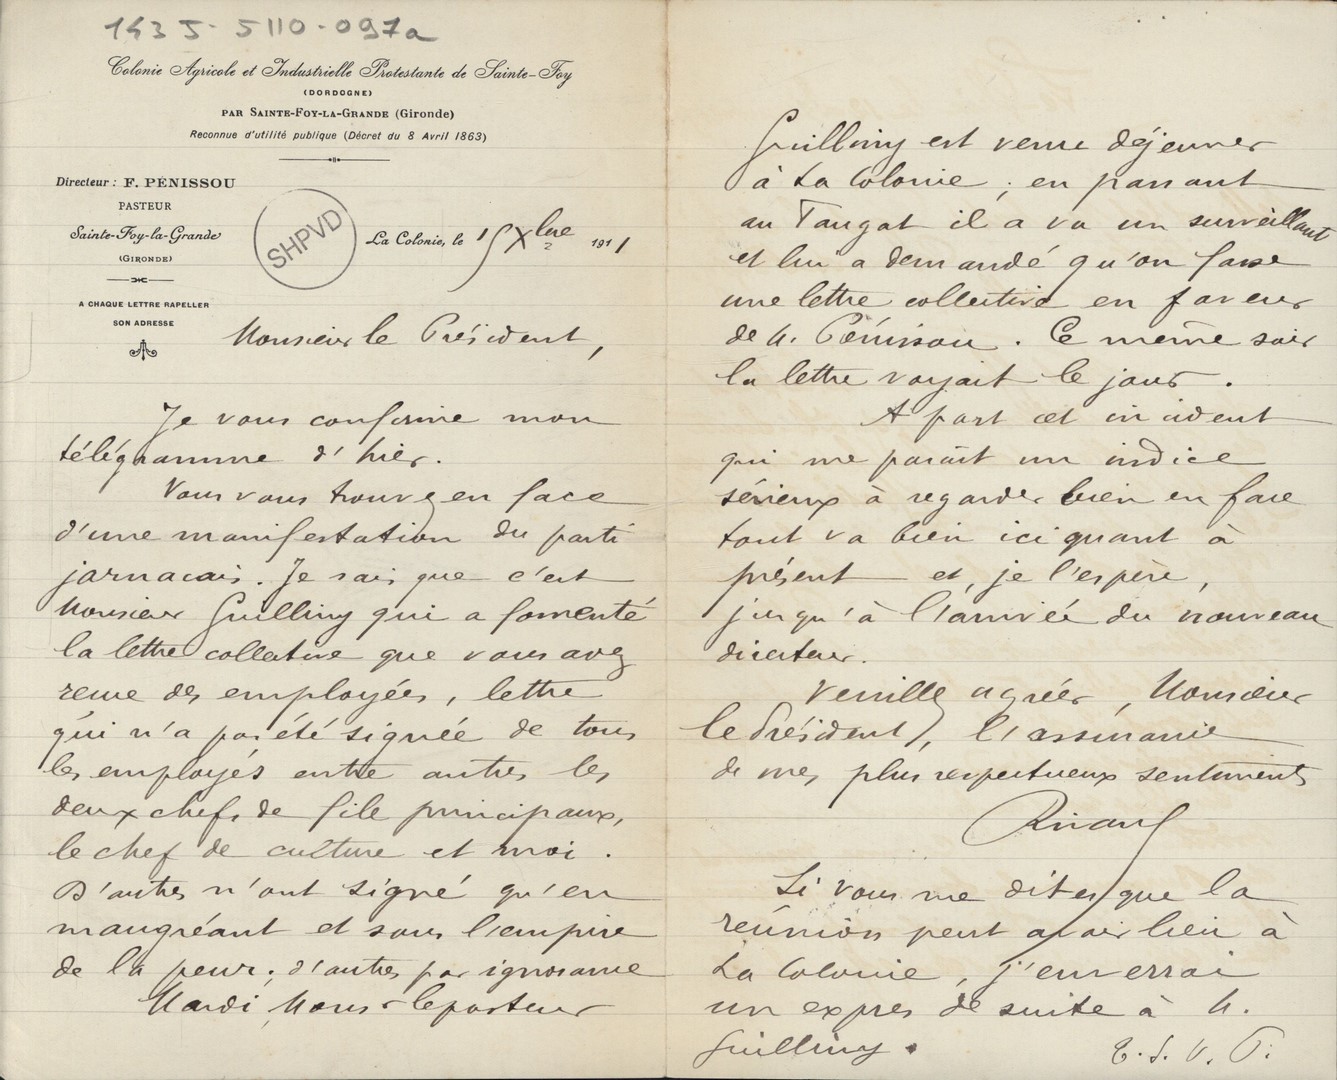 143 J - 5110 - 097a
Colonie Agricole et Industrielle Protestante de Sainte-Foy
(DORDOGNE)
PAR SAINTE-FOY-LA-GRANDE (Gironde)
Reconnue d'utilité publique (Décret du 8 Avril 1863)
Directeur : F. PÉNISSOU
PASTEUR
Sainte-Foy-la-Grande
(GIRONDE)
A CHAQUE LETTRE RAPELLER
SON ADRESSE
SHPVD
La Colonie, le 15 Xbre 1911
Monsieur le Président,
Je vous confirme mon
télégramme d'hier.
Vous vous trouvez en face
d'une manifestation du parti
jarnacais. Je sais que c'est
Monsieur Guilliny qui a fomenté
la lettre collective que vous avez
reçue des employées, lettre
qui n'a pas été signée de tous
les employés entre autres les
deux chefs de file principaux,
le chef de culture et moi.
D'autres n'ont signé qu'en
maugréant et sous l'empire
de la peur ; d'autres par ignorance
Mardi, Monsr le pasteur
Guilliny est venu déjeuner
à La Colonie ; en passant
au Taugat il a vu un surveillant
et lui a demandé qu'on fasse
une lettre collective en faveur
de M. Pénissou. Ce même soir
la lettre voyait le jour.
A part cet incident
qui me paraît un indice
sérieux à regarder bien en face
tout va bien ici quant à
présent et, je l'espère,
jusqu'à l'arrivée du nouveau
directeur.
Veuillez agréer, Monsieur
le Président, l'assurance
de mes plus respectueux sentiments
Si vous me dites que la
réunion peut avoir lieu à
La Colonie, j'enverrai
un expres de suite à M.
Guilliny.
T. S. V. P.